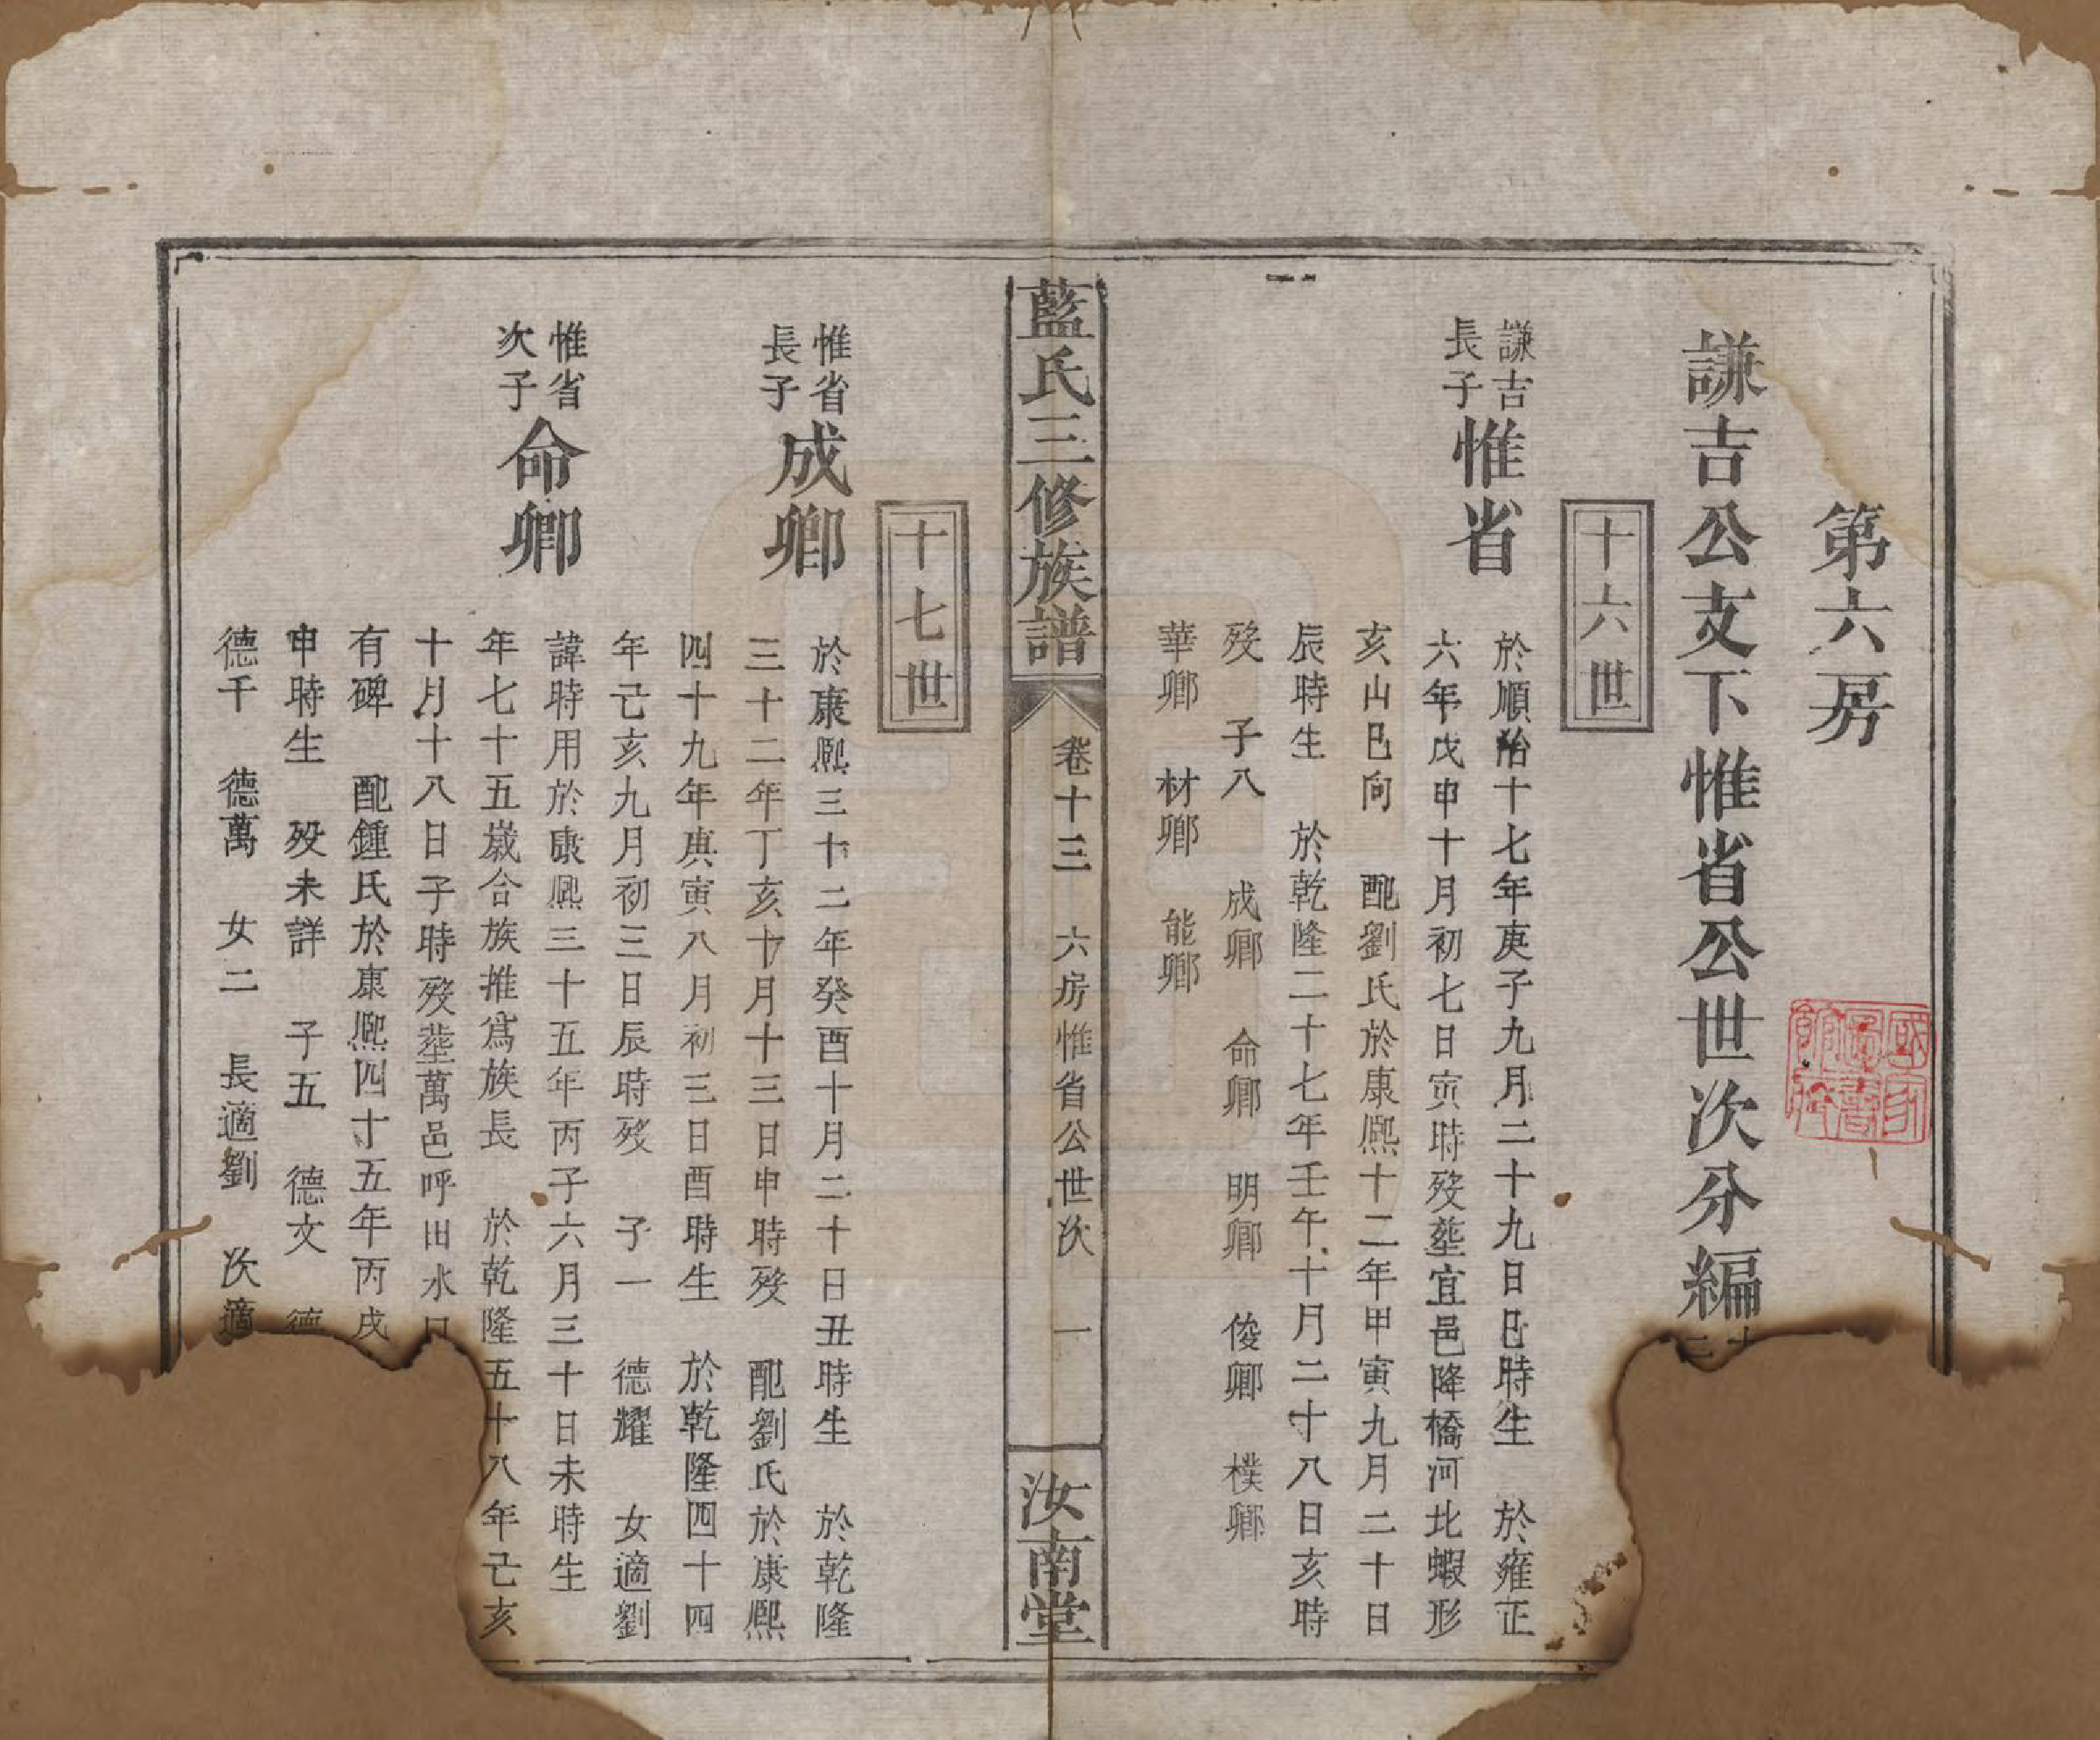 第六房
謙吉公支下惟省公世次分編
十六世
謙吉
長子
惟省
於順治十七年庚子九月二十九日巳時生　於雍正
六年戊申十月初七日寅時歿塟宜邑降橋河北蝦形
亥山巳向　配劉氏於康熙十二年甲寅九月二十日
辰時生　於乾隆二十七年壬午十月二十八日亥時
歿　子八　成卿　命卿　明卿　俊卿　樸卿
華卿　材卿　能卿
藍氏三修族譜
卷十三　六房惟省公世次　一
汝南堂
十七世
惟省
長子
成卿
於康熙三十二年癸酉十月二十日丑時生　於乾隆
三十二年丁亥十月十三日申時歿　配劉氏於康熙
四十九年庚寅八月初三日酉時生　於乾隆四十四
年己亥九月初三日辰時歿　子一　德耀　女適劉
惟省
次子
命卿
諱時用於康熙三十五年丙子六月三十日未時生
年七十五歲合族推爲族長　於乾隆五十八年亡亥
十月十八日子時歿塟萬邑呼田水口
有碑　配鍾氏於康熙四十五年丙戌
申時生　歿未詳　子五　德文　德
德千　德萬　女二　長適劉　次適
國家圖書館藏